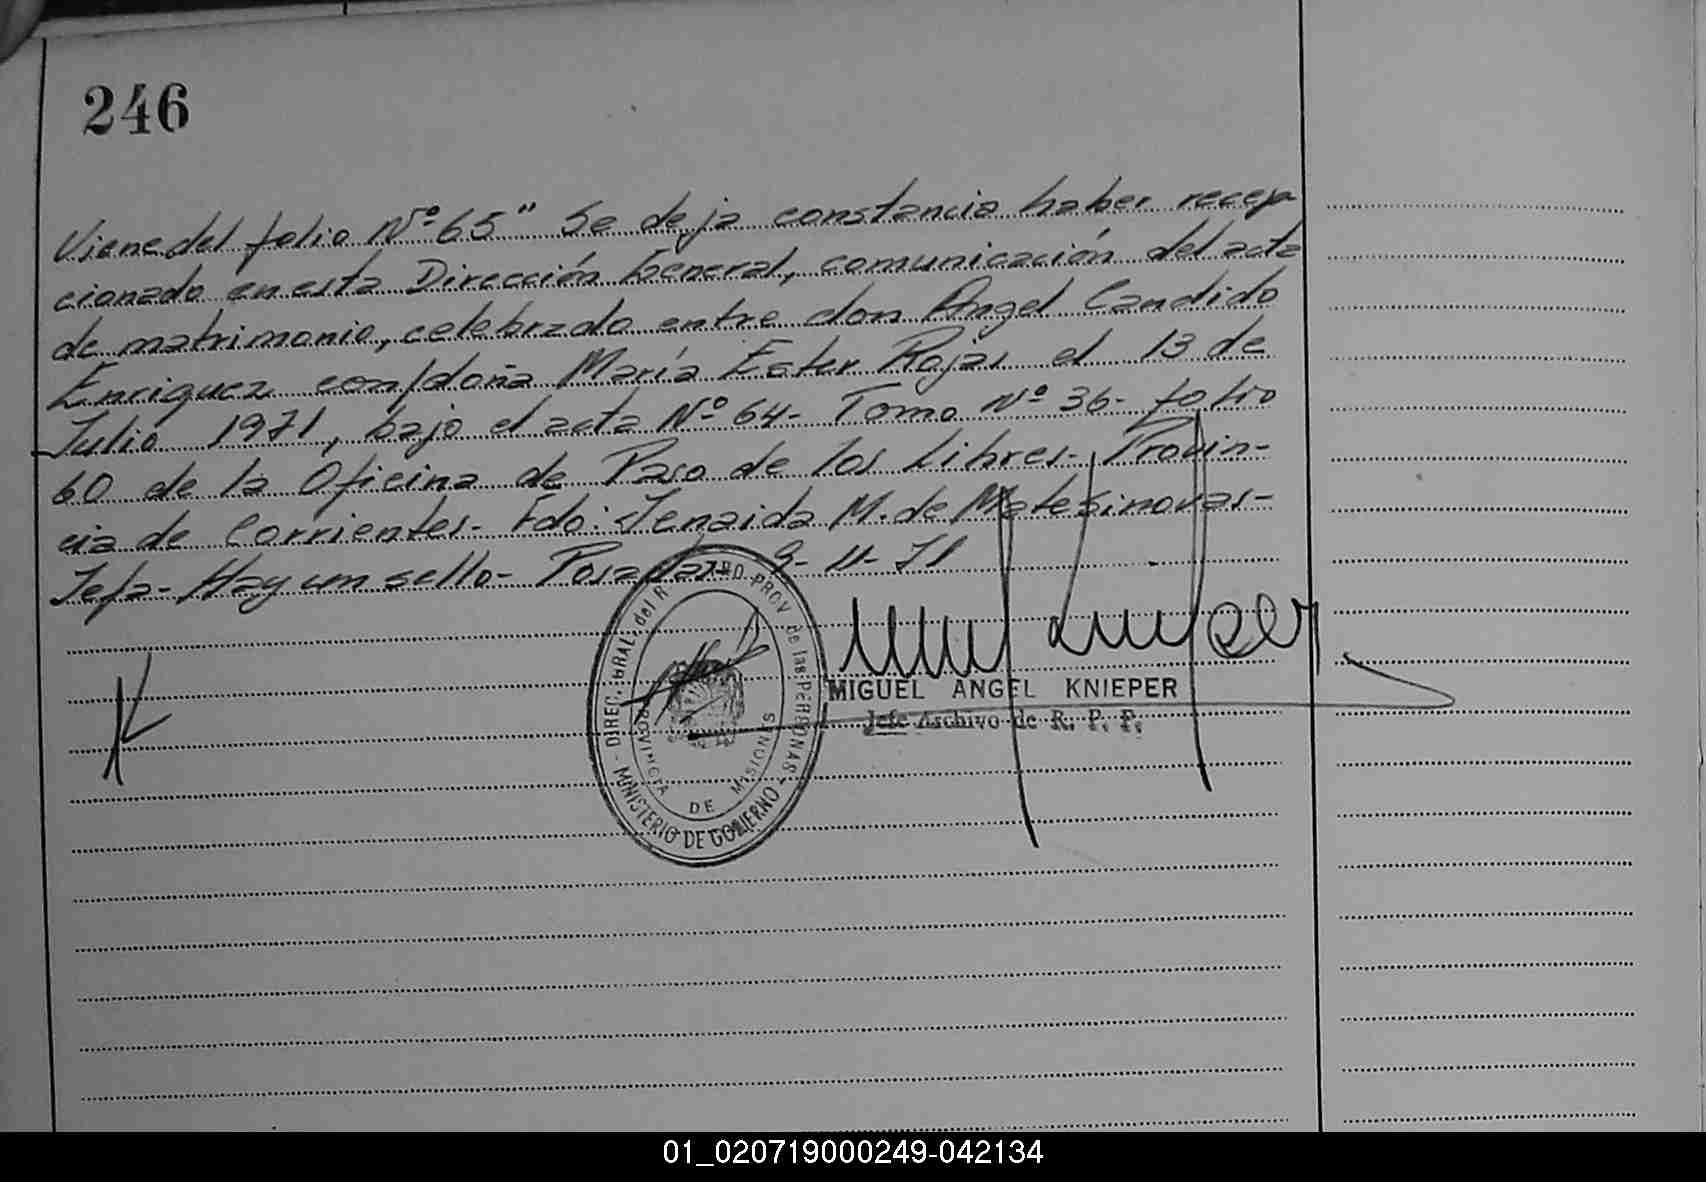 246
Viene del folio Nº 65" Se deja constancia haber recep
cionado en esta Dirección General, comunicación del acta
de matrimonio, celebrado entre don Angel Candido
Enriquez con/doña María Ester Rojas el 13 de
Julio 1971, bajo el acta Nº 64- Tomo Nº 36- folio
60 de la Oficina de Paso de los Libres- Provin-
cia de Corrientes- Fdo: M. de
Jefa- Hay un sello- Posadas 9-11-71
DIREC. GRAL. del R PROV. de las PERSONAS
MINISTERIO DE GOBIERNO
PROVINCIA DE MISIONES
MIGUEL ANGEL KNIEPER
Jefe Archivo de R. P. P.
01_020719000249-042134